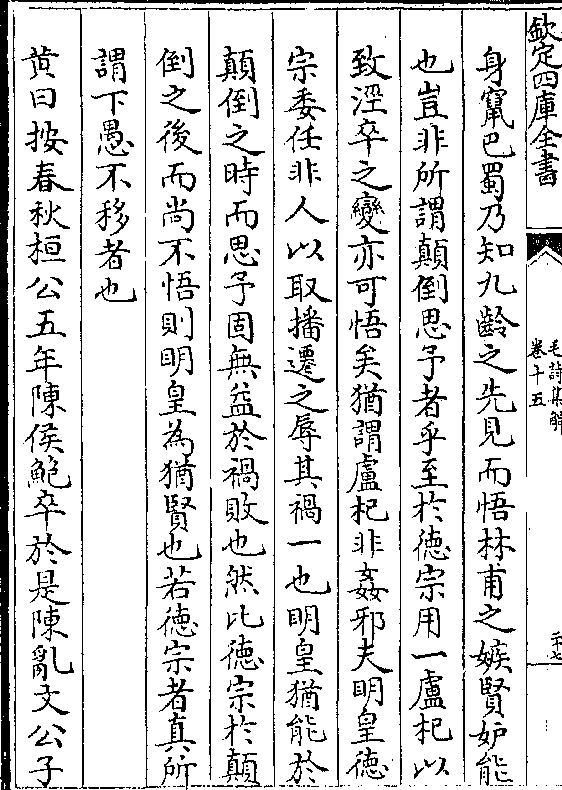 欽定四庫全書
毛詩集解
卷十五
二十七
身竄巴蜀乃知九齡之先見而悟林甫之嫉賢妒能
也豈非所謂顛倒思予者乎至於徳宗用一盧杞以
致涇卒之變亦可悟矣猶謂盧杞非姦邪夫明皇徳
宗委任非人以取播遷之辱其禍一也明皇猶能於
顛倒之時而思予固無益於禍敗也然比徳宗於顛
倒之後而尚不悟則明皇為猶賢也若徳宗者真所
謂下愚不移者也
黄曰按春秋桓公五年陳侯鮑卒於是陳亂文公子